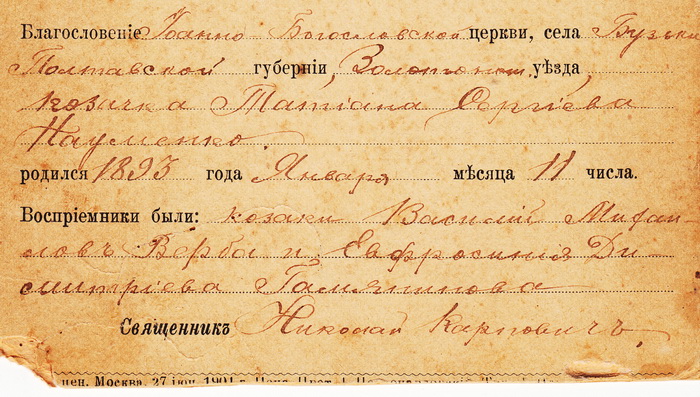 Благословеніе Іоанно-Богословской церкви, села Бузьки
Полтавской губерніи, Золотонош. уѣзда,
козачка Татіана Сергіева
Науменко.
родился 1893 года Января мѣсяца 11 числа.
Воспріемники были: козаки Василій Михаи-
ловъ Верба и Евфросинія Ди-
митріева
Священникъ Николай Карповичъ.
цен. Москва, 27 іюн. 1901 г.